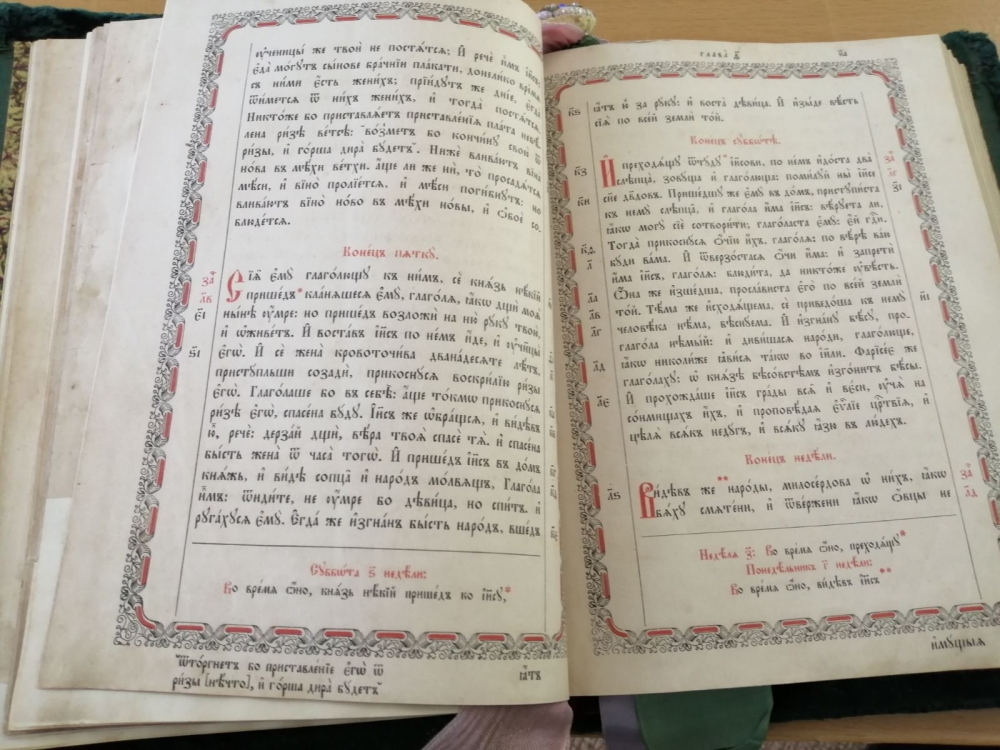 ᲂу҆ченицы̀ же твоѝ не постѧ́тсѧ; И҆ речѐ и҆̀мъ і҆и҃съ:
є҆да̀ мо́гꙋтъ сы́нове бра́чнїи пла́кати, доне́лико вре́мѧ
съ ни́ми є҆́сть жени́хъ; прїи́дꙋтъ же дні́е, є҆гда̀
ѿи́метсѧ ѿ ни́хъ жени́хъ, и҆ тогда̀ постѧ́тсѧ.
Никто́же бо приставлѧ́етъ приставле́нїѧ пла́та небѣ́-
лена ри́зѣ ве́тсѣ: во́зметъ бо кончи́нꙋ свою̀ ѿ
ри́зы, и҆ го́рша дира̀ бꙋ́детъ. Нижѐ влива́ютъ вїна̀
но́ва въ мѣ́хи ве́тхи. а҆́ще ли же нѝ, то̀ просадѧ́тсѧ
мѣ́си, и҆ вїно̀ пролїе́тсѧ, и҆ мѣ́си поги́бнꙋтъ: но
влива́ютъ вїно̀ но́во въ мѣ́хи но́вы, и҆ ѻ҆бо́е со-
блюде́тсѧ.
Коне́цъ пѧткꙋ̀.
Сїѧ̑ є҆мꙋ̀ глаго́лющꙋ къ ни̑мъ, сѐ кнѧ́зь нѣ́кїй
прише́дъ* кла́нѧшесѧ є҆мꙋ̀, глаго́лѧ, ꙗ҆́кѡ дщѝ моѧ̀
ны́нѣ ᲂу҆́мре: но прише́дъ возложѝ на ню̀ рꙋ́кꙋ твою̀,
и҆ ѡ҆живе́тъ. И҆ воста́въ і҆и҃съ по не́мъ и҆́де, и҆ ᲂу҆чн҃цы̀
є҆гѡ̀. И҆ сѐ жена̀ кровоточи́ва двана́десѧте лѣ́тъ,
пристꙋ́пльши созадѝ, прикоснꙋ́сѧ воскри́лїю ри́зы
є҆гѡ̀. Глаго́лаше бо въ себѣ̀: а҆́ще то́кмѡ прикоснꙋ́сѧ
ри́зѣ є҆гѡ̀, спасе́на бꙋ́дꙋ. І҆и҃съ же ѡ҆бра́щсѧ, и҆ ви́дѣвъ
ю҆̀, речѐ: дерза́й дщѝ, вѣ́ра твоѧ̀ спасе́ тѧ. и҆ спасе́на
бы́сть жена̀ ѿ часа̀ тогѡ̀. И҆ прише́дъ і҆и҃съ въ до́мъ
кнѧ́жь, и҆ ви́дѣ сопцы̀ и҆ наро́дъ мо́лвѧщь, Глаго́ла
и҆̀мъ: ѿиди́те, не ᲂу҆́мре бо дѣви́ца, но спи́тъ. и҆
рꙋга́хꙋсѧ є҆мꙋ̀. Є҆гда́ же и҆згна́нъ бы́сть наро́дъ, вше́дъ
Сꙋббѡ́та ѕ҃ недѣ́ли:
Во вре́мѧ ѻ҆́но, кнѧ́зь нѣ́кїй прише́дъ ко і҆и҃сꙋ,*
ѿто́ргнетъ бо приставле́нїе є҆гѡ̀ ѿ
ри́зы [нѣ́что], и҆ го́рша дира̀ бꙋ́детъ
ꙗ҆́тъ
глава̀
ꙗ҆́тъ ю҆̀ за рꙋ́кꙋ: и҆ воста̀ дѣви́ца. И҆ и҆зы́де вѣ́сть
сїѧ̀ по все́й землѝ то́й.
Коне́цъ сꙋббѡ́тѣ.
И҆ преходѧ́щꙋ ѿтꙋ́дꙋ* і҆и҃сови, по не́мъ и҆до́ста два̀
слѣпца̑, зовꙋ̑ща и҆ глагѡ́люща: поми́лꙋй ны̀ і҆и҃се
сн҃е дв҃довъ. Прише́дшꙋ же є҆мꙋ̀ въ до́мъ, пристꙋпи́ста
къ немꙋ̀ слѣпца̑, и҆ глаго́ла и҆́ма і҆и҃съ: вѣ́рꙋета ли,
ꙗ҆́кѡ могꙋ̀ сїѐ сотвори́ти; глаго́ласта є҆мꙋ̀: є҆́й гд҇и.
Тогда̀ прикоснꙋ́сѧ ѻ҆́чїю и҆́хъ, глаго́лѧ: по вѣ́рѣ ва́ю
бꙋ́ди ва́ма. И҆ ѿверзо́стасѧ ѻ҆́чи и҆́ма: и҆ запретѝ
и҆́ма і҆и҃съ, глаго́лѧ: блюди́та, да никто́же ᲂу҆вѣ́сть.
Ѡ҆́на же и҆зше́дша, просла́виста є҆го̀ по все́й землѝ
то́й. Тѣ́ма же и҆сходѧ́щема, сѐ приведо́ша къ немꙋ̀
человѣ́ка нѣ́ма, бѣснꙋ́ема. И҆ и҆згна́нꙋ бѣ́сꙋ, про-
глаго́ла нѣмы́й: и҆ диви́шасѧ наро́ди, глаго́люще,
ꙗ҆́кѡ николи́же ꙗ҆ви́сѧ та́кѡ во і҆и҃ли. Фарїсе́є же
глаго́лахꙋ: ѡ҆ кнѧ́зѣ бѣсо́встѣмъ и҆зго́нитъ бѣ́сы.
И҆ прохожда́ше і҆и҃съ гра́ды всѧ̑ и҆ вє́си, ᲂу҆чѧ̀ на
со́нмищахъ и҆́хъ, и҆ проповѣ́даѧ є҆ѵⷢ҇лїе црⷭ҇твїѧ, и҆
цѣлѧ̀ всѧ́къ недꙋ́гъ, и҆ всѧ́кꙋ ꙗ҆́зю въ лю́дехъ.
Коне́цъ недѣ́ли.
Ви́дѣвъ же** наро́ды, милосе́рдова ѡ҆ ни́хъ, ꙗ҆́кѡ
бѧ́хꙋ смѧте́ни, и҆ ѿве́ржени ꙗ҆́кѡ ѻ҆́вцы не
Недѣ́лѧ з҃: Во вре́мѧ ѻ҆́но, преходѧ́щꙋ*
Понедѣ́льникъ г҃ недѣ́ли:
Во вре́мѧ ѻ҆́но, ви́дѣвъ і҆и҃съ**
и҆мꙋ́щыѧ